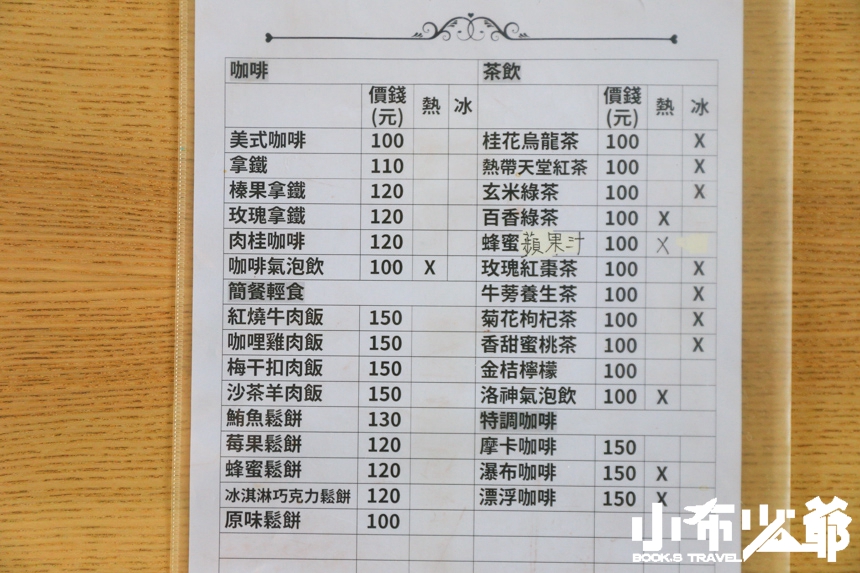 咖啡 茶飲
價錢(元) 熱 冰 價錢(元) 熱 冰
美式咖啡 100 桂花烏龍茶 100 X
拿鐵 110 熱帶天堂紅茶 100 X
榛果拿鐵 120 玄米綠茶 100 X
玫瑰拿鐵 120 百香綠茶 100 X
肉桂咖啡 120 蜂蜜蘋果汁 100 X
咖啡氣泡飲 100 X 玫瑰紅棗茶 100 X
簡餐輕食 牛蒡養生茶 100 X
紅燒牛肉飯 150 菊花枸杞茶 100 X
咖哩雞肉飯 150 香甜蜜桃茶 100 X
梅干扣肉飯 150 金桔檸檬 100
沙茶羊肉飯 150 洛神氣泡飲 100 X
鮪魚鬆餅 130 特調咖啡
莓果鬆餅 120 摩卡咖啡 150
蜂蜜鬆餅 120 瀑布咖啡 150 X
冰淇淋巧克力鬆餅 120 漂浮咖啡 150 X
原味鬆餅 100
小布少爺
BOOK.S TRAVEL